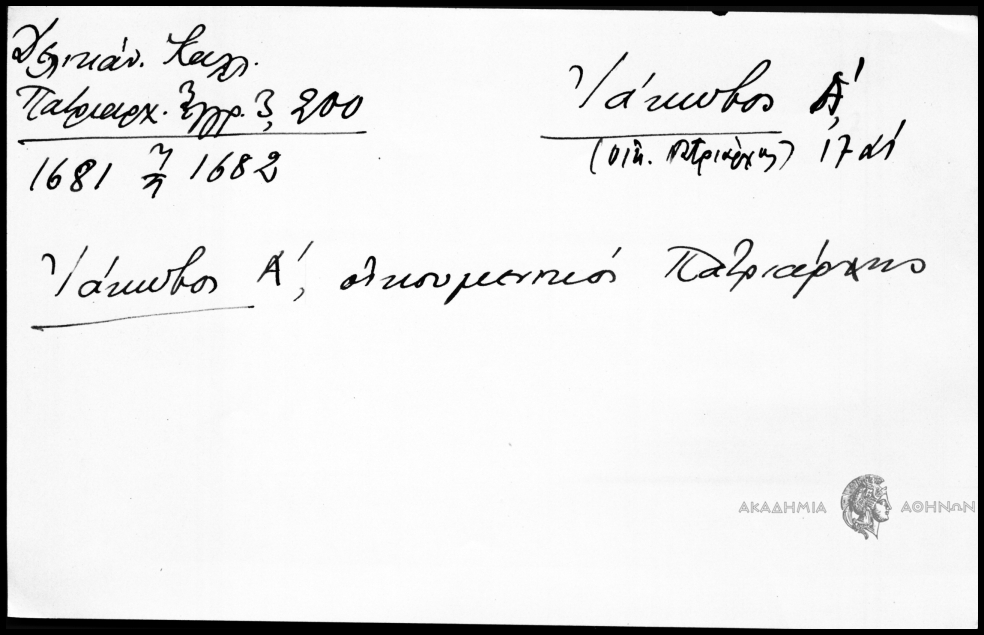 Δελικάν. Καλλ.
Πατριαρχ. Ἔγγρ. 3, 200
1681 ἢ 1682
Ἰάκωβος Α΄
(οἰκ. Πατριάρχης) 17 αἰ
Ἰάκωβος Α΄, οἰκουμενικός Πατριάρχης
ΑΚΑΔΗΜΙΑ ΑΘΗΝΩΝ